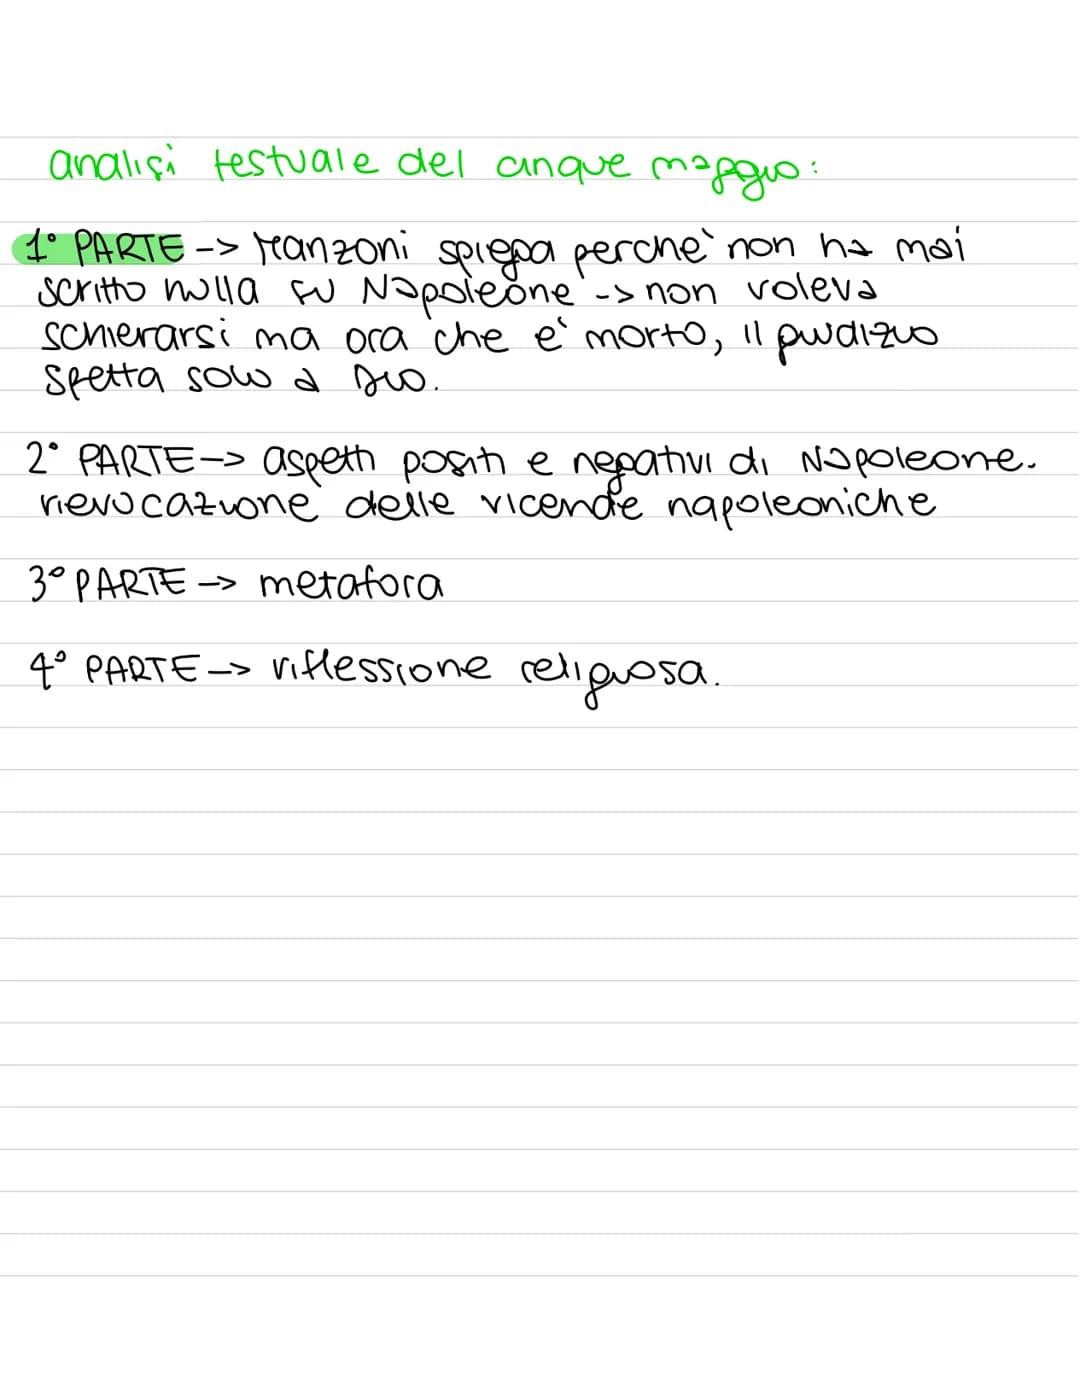 analisi testuale del cinque maggio:
1° PARTE -> Manzoni spiega perche' non ha mai
scritto nulla su Napoleone -> non voleva
schierarsi ma ora che e' morto, il giudizio
spetta solo a Dio.
2° PARTE -> aspetti positi e negativi di Napoleone.
rievocazione delle vicende napoleoniche
3° PARTE -> metafora
4° PARTE -> riflessione religiosa.